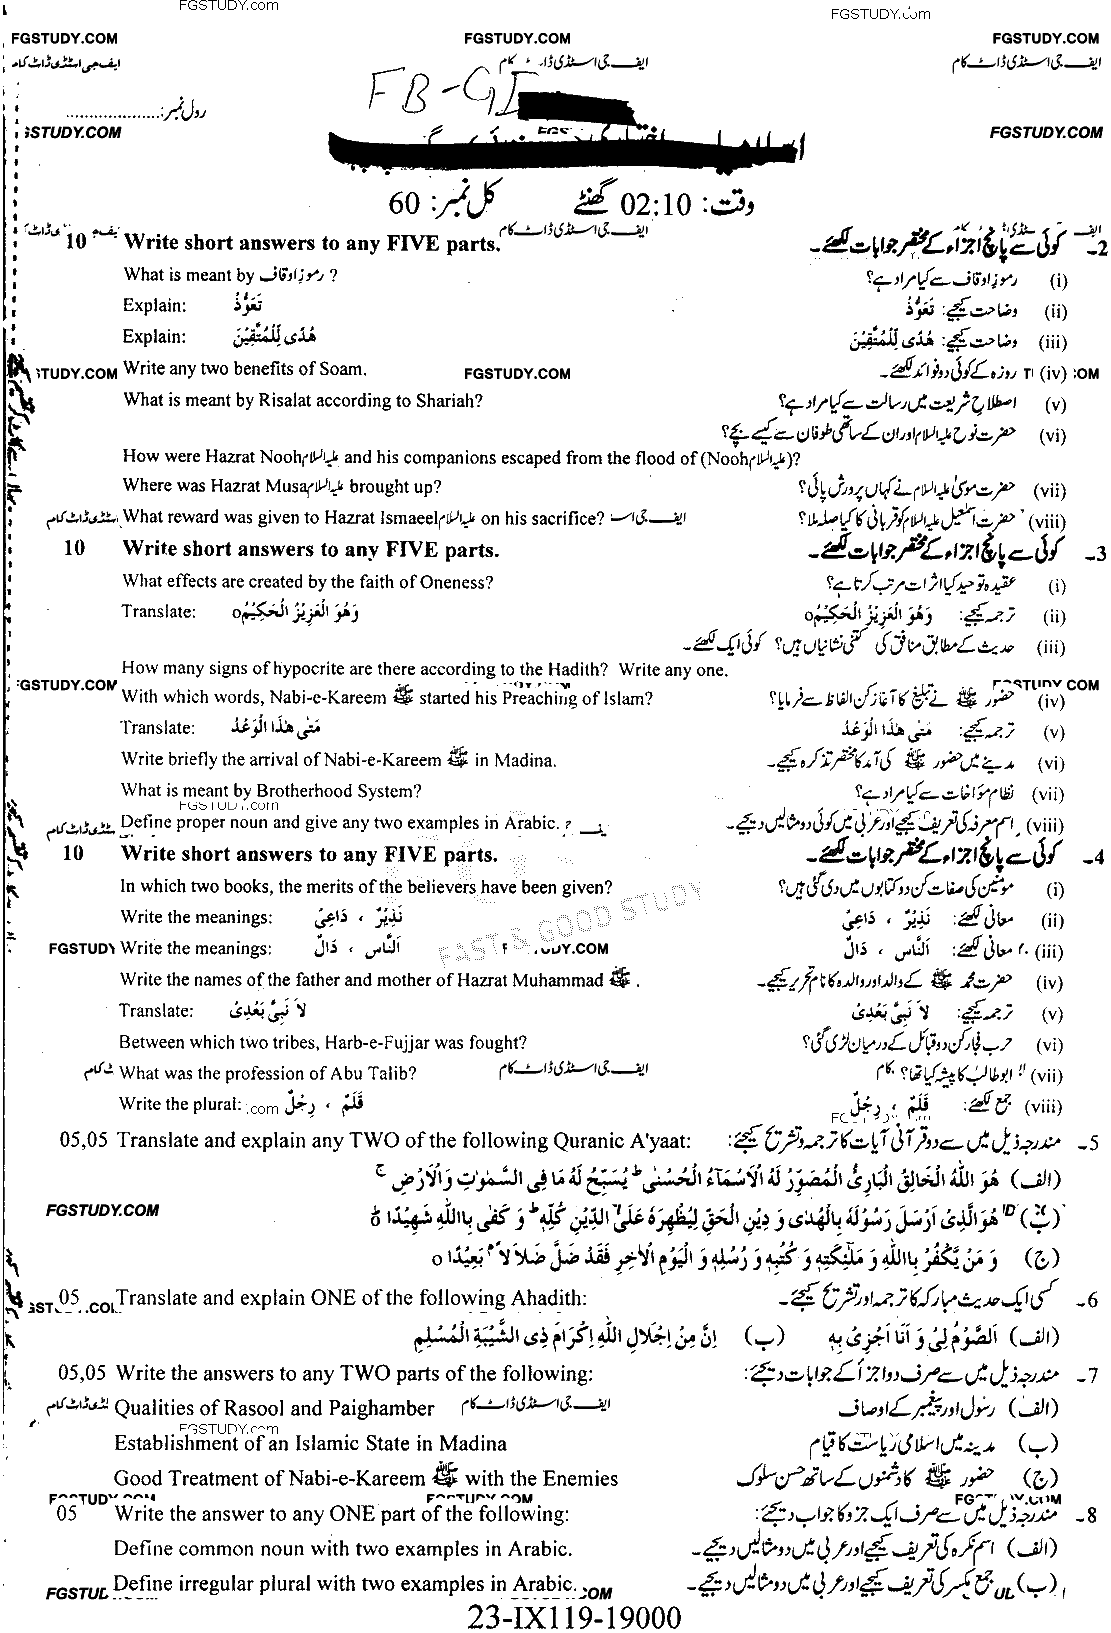 FGSTUDY.COM FGSTUDY.COM
FGSTUDY.COM FGSTUDY.COM FGSTUDY.COM
ایف جی اسٹڈی ڈاٹ کام ایف جی اسٹڈی ڈاٹ کام ایف جی اسٹڈی ڈاٹ کام
FB-GI
رول نمبر:......................
GSTUDY.COM FGSTUDY.COM
وقت: 02:10 گھنٹے کل نمبر: 60
10 Write short answers to any FIVE parts. 2۔ کوئی سے پانچ اجزاء کے مختصر جوابات لکھئے۔
What is meant by رموزِ اوقاف ? (i) رموزِ اوقاف سے کیا مراد ہے؟
Explain: تَعَوُّذْ (ii) وضاحت کیجئے: تَعَوُّذْ
Explain: هُدًى لِّلْمُتَّقِيْنَ (iii) وضاحت کیجئے: هُدًى لِّلْمُتَّقِيْنَ
TUDY.COM Write any two benefits of Soam. FGSTUDY.COM (iv) روزہ کے کوئی دو فوائد لکھئے۔ COM
What is meant by Risalat according to Shariah? (v) اصطلاحِ شریعت میں رسالت سے کیا مراد ہے؟
(vi) حضرت نوح علیہ السلام اور ان کے ساتھی طوفان سے کیسے بچے؟
How were Hazrat Nooh علیہ السلام and his companions escaped from the flood of (Nooh علیہ السلام)?
Where was Hazrat Musa علیہ السلام brought up? (vii) حضرت موسیٰ علیہ السلام نے کہاں پرورش پائی؟
What reward was given to Hazrat Ismaeel علیہ السلام on his sacrifice? (viii) حضرت اسمٰعیل علیہ السلام کو قربانی کا کیا صلہ ملا؟
10 Write short answers to any FIVE parts. 3۔ کوئی سے پانچ اجزاء کے مختصر جوابات لکھئے۔
What effects are created by the faith of Oneness? (i) عقیدہ توحید کیا اثرات مرتب کرتا ہے؟
Translate: وَهُوَ الْعَزِيْزُ الْحَكِيْمُ o (ii) ترجمہ کیجئے: وَهُوَ الْعَزِيْزُ الْحَكِيْمُ o
(iii) حدیث کے مطابق منافق کی کتنی نشانیاں ہیں؟ کوئی ایک لکھئے۔
How many signs of hypocrite are there according to the Hadith? Write any one.
GSTUDY.COM FGSTUDY.COM
With which words, Nabi-e-Kareem ﷺ started his Preaching of Islam? (iv) حضور ﷺ نے تبلیغ کا آغاز کن الفاظ سے فرمایا؟
Translate: مَتٰى هٰذَا الْوَعْدُ (v) ترجمہ کیجئے: مَتٰى هٰذَا الْوَعْدُ
Write briefly the arrival of Nabi-e-Kareem ﷺ in Madina. (vi) مدینے میں حضور ﷺ کی آمد کا مختصر تذکرہ کیجئے۔
What is meant by Brotherhood System? (vii) نظامِ مؤاخات سے کیا مراد ہے؟
FGSTUDY.com
Define proper noun and give any two examples in Arabic. (viii) اسم معرفہ کی تعریف کیجئے اور عربی میں کوئی دو مثالیں دیجئے۔
10 Write short answers to any FIVE parts. 4۔ کوئی سے پانچ اجزاء کے مختصر جوابات لکھئے۔
In which two books, the merits of the believers have been given? (i) مومنین کی صفات کن دو کتابوں میں دی گئی ہیں؟
Write the meanings: نَذِيْرٌ ، دَاعِىْ (ii) معانی لکھئے: نَذِيْرٌ ، دَاعِىْ
FAST & GOOD STUDY
FGSTUDY Write the meanings: اَلنَّاس ، دَالٌ (iii) معانی لکھئے: اَلنَّاس ، دَالٌ
Write the names of the father and mother of Hazrat Muhammad ﷺ. (iv) حضرت محمد ﷺ کے والد اور والدہ کا نام تحریر کیجئے۔
Translate: لَا نَبِىَّ بَعْدِىْ (v) ترجمہ کیجئے: لَا نَبِىَّ بَعْدِىْ
Between which two tribes, Harb-e-Fujjar was fought? (vi) حربِ فجار کن دو قبائل کے درمیان لڑی گئی؟
What was the profession of Abu Talib? ایف جی اسٹڈی ڈاٹ کام (vii) ابوطالب کا پیشہ کیا تھا؟
Write the plural: قَلَمٌ ، رَجُلٌ (viii) جمع لکھئے: قَلَمٌ ، رَجُلٌ
05,05 Translate and explain any TWO of the following Quranic A'yaat: 5۔ مندرجہ ذیل میں سے دو قرآنی آیات کا ترجمہ و تشریح کیجئے:
(الف) هُوَ اللّٰهُ الْخَالِقُ الْبَارِئُ الْمُصَوِّرُ لَهُ الْاَسْمَآءُ الْحُسْنٰى ط يُسَبِّحُ لَهُ مَا فِى السَّمٰوٰتِ وَالْاَرْضِ ج
FGSTUDY.COM
(ب) هُوَ الَّذِىْ اَرْسَلَ رَسُوْلَهُ بِالْهُدٰى وَ دِيْنِ الْحَقِّ لِيُظْهِرَهُ عَلَى الدِّيْنِ كُلِّهٖ ط وَ كَفٰى بِاللّٰهِ شَهِيْدًا o
(ج) وَ مَنْ يَّكْفُرْ بِاللّٰهِ وَ مَلٰٓئِكَتِهٖ وَ كُتُبِهٖ وَ رُسُلِهٖ وَ الْيَوْمِ الْاٰخِرِ فَقَدْ ضَلَّ ضَلَالًا بَعِيْدًا o
05 Translate and explain ONE of the following Ahadith: 6۔ کسی ایک حدیث مبارکہ کا ترجمہ اور تشریح کیجئے۔
(الف) اَلصَّوْمُ لِىْ وَ اَنَا اَجْزِىْ بِهٖ (ب) اِنَّ مِنْ اِجْلَالِ اللّٰهِ اِكْرَامَ ذِى الشَّيْبَةِ الْمُسْلِمِ
05,05 Write the answers to any TWO parts of the following: 7۔ مندرجہ ذیل میں سے صرف دو اجزأ کے جوابات دیجئے:
Qualities of Rasool and Paighamber ایف جی اسٹڈی ڈاٹ کام (الف) رسول اور پیغمبر کے اوصاف
FGSTUDY.com
Establishment of an Islamic State in Madina (ب) مدینہ میں اسلامی ریاست کا قیام
Good Treatment of Nabi-e-Kareem ﷺ with the Enemies (ج) حضور ﷺ کا دشمنوں کے ساتھ حسن سلوک
FGSTUDY.COM FGSTUDY.COM FGSTUDY.COM
05 Write the answer to any ONE part of the following: 8۔ مندرجہ ذیل میں سے صرف ایک جزو کا جواب دیجئے:
Define common noun with two examples in Arabic. (الف) اسم نکرہ کی تعریف کیجئے اور عربی میں دو مثالیں دیجئے۔
FGSTUD Define irregular plural with two examples in Arabic. COM (ب) جمع مکسر کی تعریف کیجئے اور عربی میں دو مثالیں دیجئے۔
23-IX119-19000